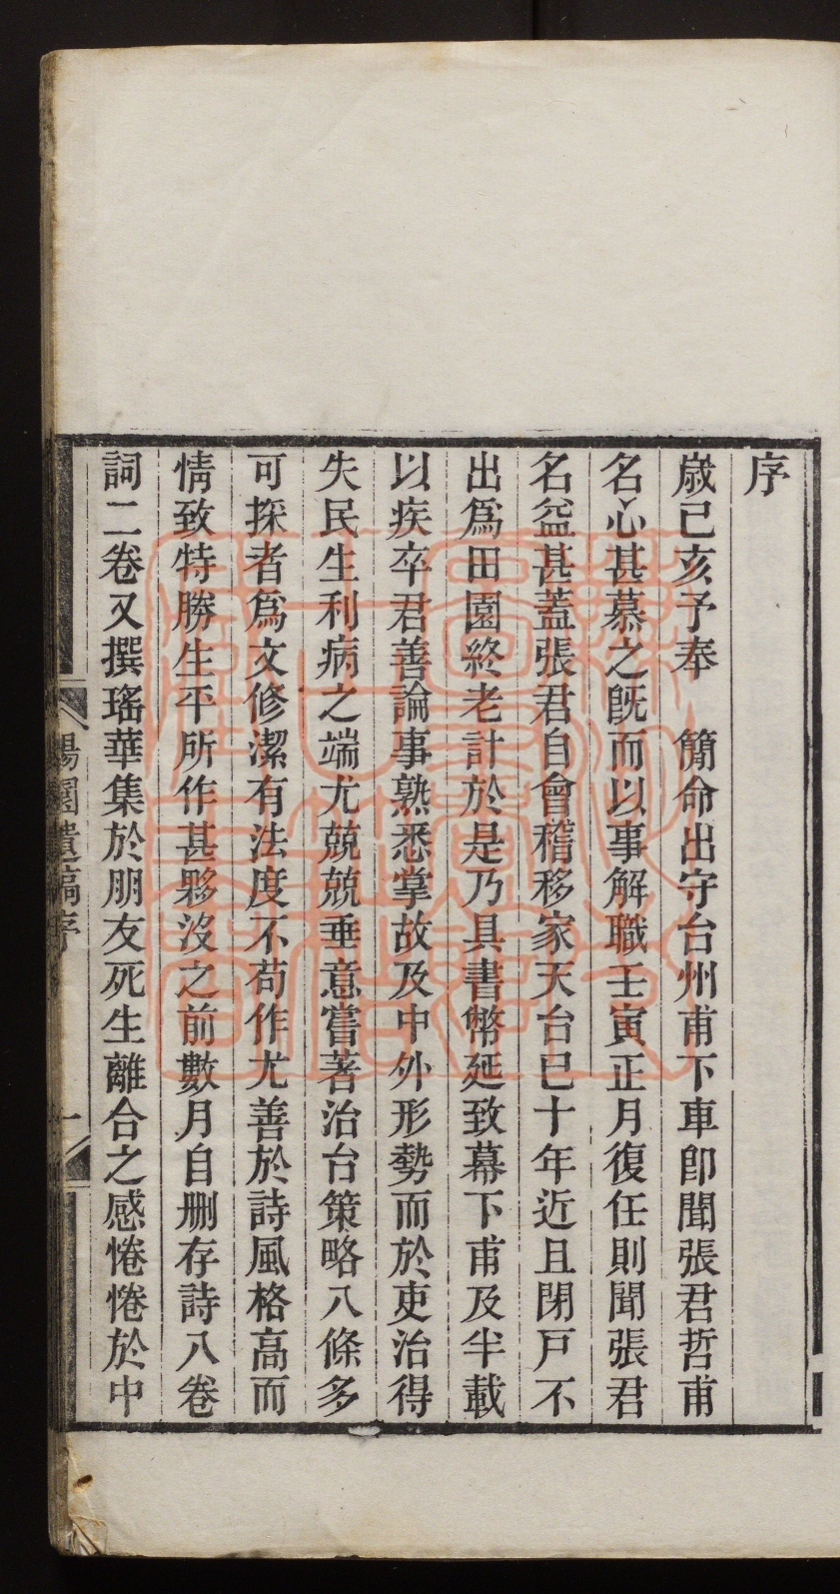 序
歲己亥予奉　簡命出守台州甫下車卽聞張君哲甫
名心甚慕之旣而以事解職壬寅正月復任則聞張君
名益甚蓋張君自會稽移家天台已十年近且閉戸不
出爲田園終老計於是乃具書幣延致幕下甫及半載
以疾卒君善論事熟悉掌故及中外形勢而於吏治得
失民生利病之端尤兢兢垂意嘗著治台策略八條多
可採者爲文修潔有法度不苟作尤善於詩風格高而
情致特勝生平所作甚夥沒之前數月自删存詩八卷
詞二卷又撰瑤華集於朋友死生離合之感惓惓於中
園遺稿序
一